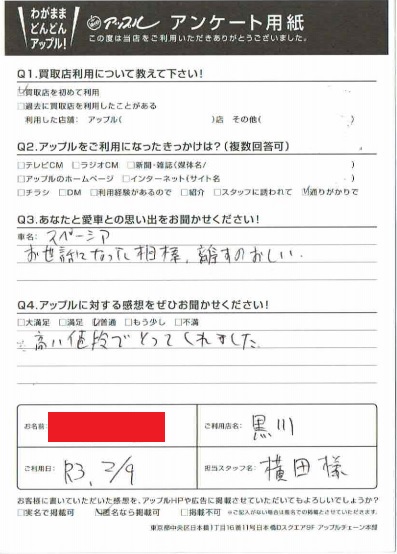 わがまま
どんどん
アップル!
アップル アンケート用紙
この度は当店をご利用いただきありがとうございました。
Q1.買取店利用について教えて下さい!
☑買取店を初めて利用
□過去に買取店を利用したことがある
利用した店舗: アップル( )店 その他( )
Q2.アップルをご利用になったきっかけは?(複数回答可)
□テレビCM □ラジオCM □新聞・雑誌(媒体名/ )
□アップルのホームページ □インターネット(サイト名 )
□チラシ □DM □利用経験があるので □紹介 □スタッフに誘われて ☑通りがかりで
Q3.あなたと愛車との思い出をお聞かせください!
車名: スペーシア
お世話になった相棒、離すのおしい。
Q4.アップルに対する感想をぜひお聞かせください!
□大満足 □満足 ☑普通 □もう少し □不満
高い値段でとってくれました
お名前
ご利用店名: 黒川
ご利用日: R3, 2/9
担当スタッフ名: 横田 様
お客様に書いていただいた感想を、アップルHPや広告に掲載させていただいてもよろしいでしょうか?
□実名で掲載可 ☑匿名なら掲載可 □掲載不可 ※ご記入がない場合は匿名での掲載とさせていただきます。
東京都中央区日本橋1丁目16番11号日本橋Dスクエア8F アップルチェーン本部